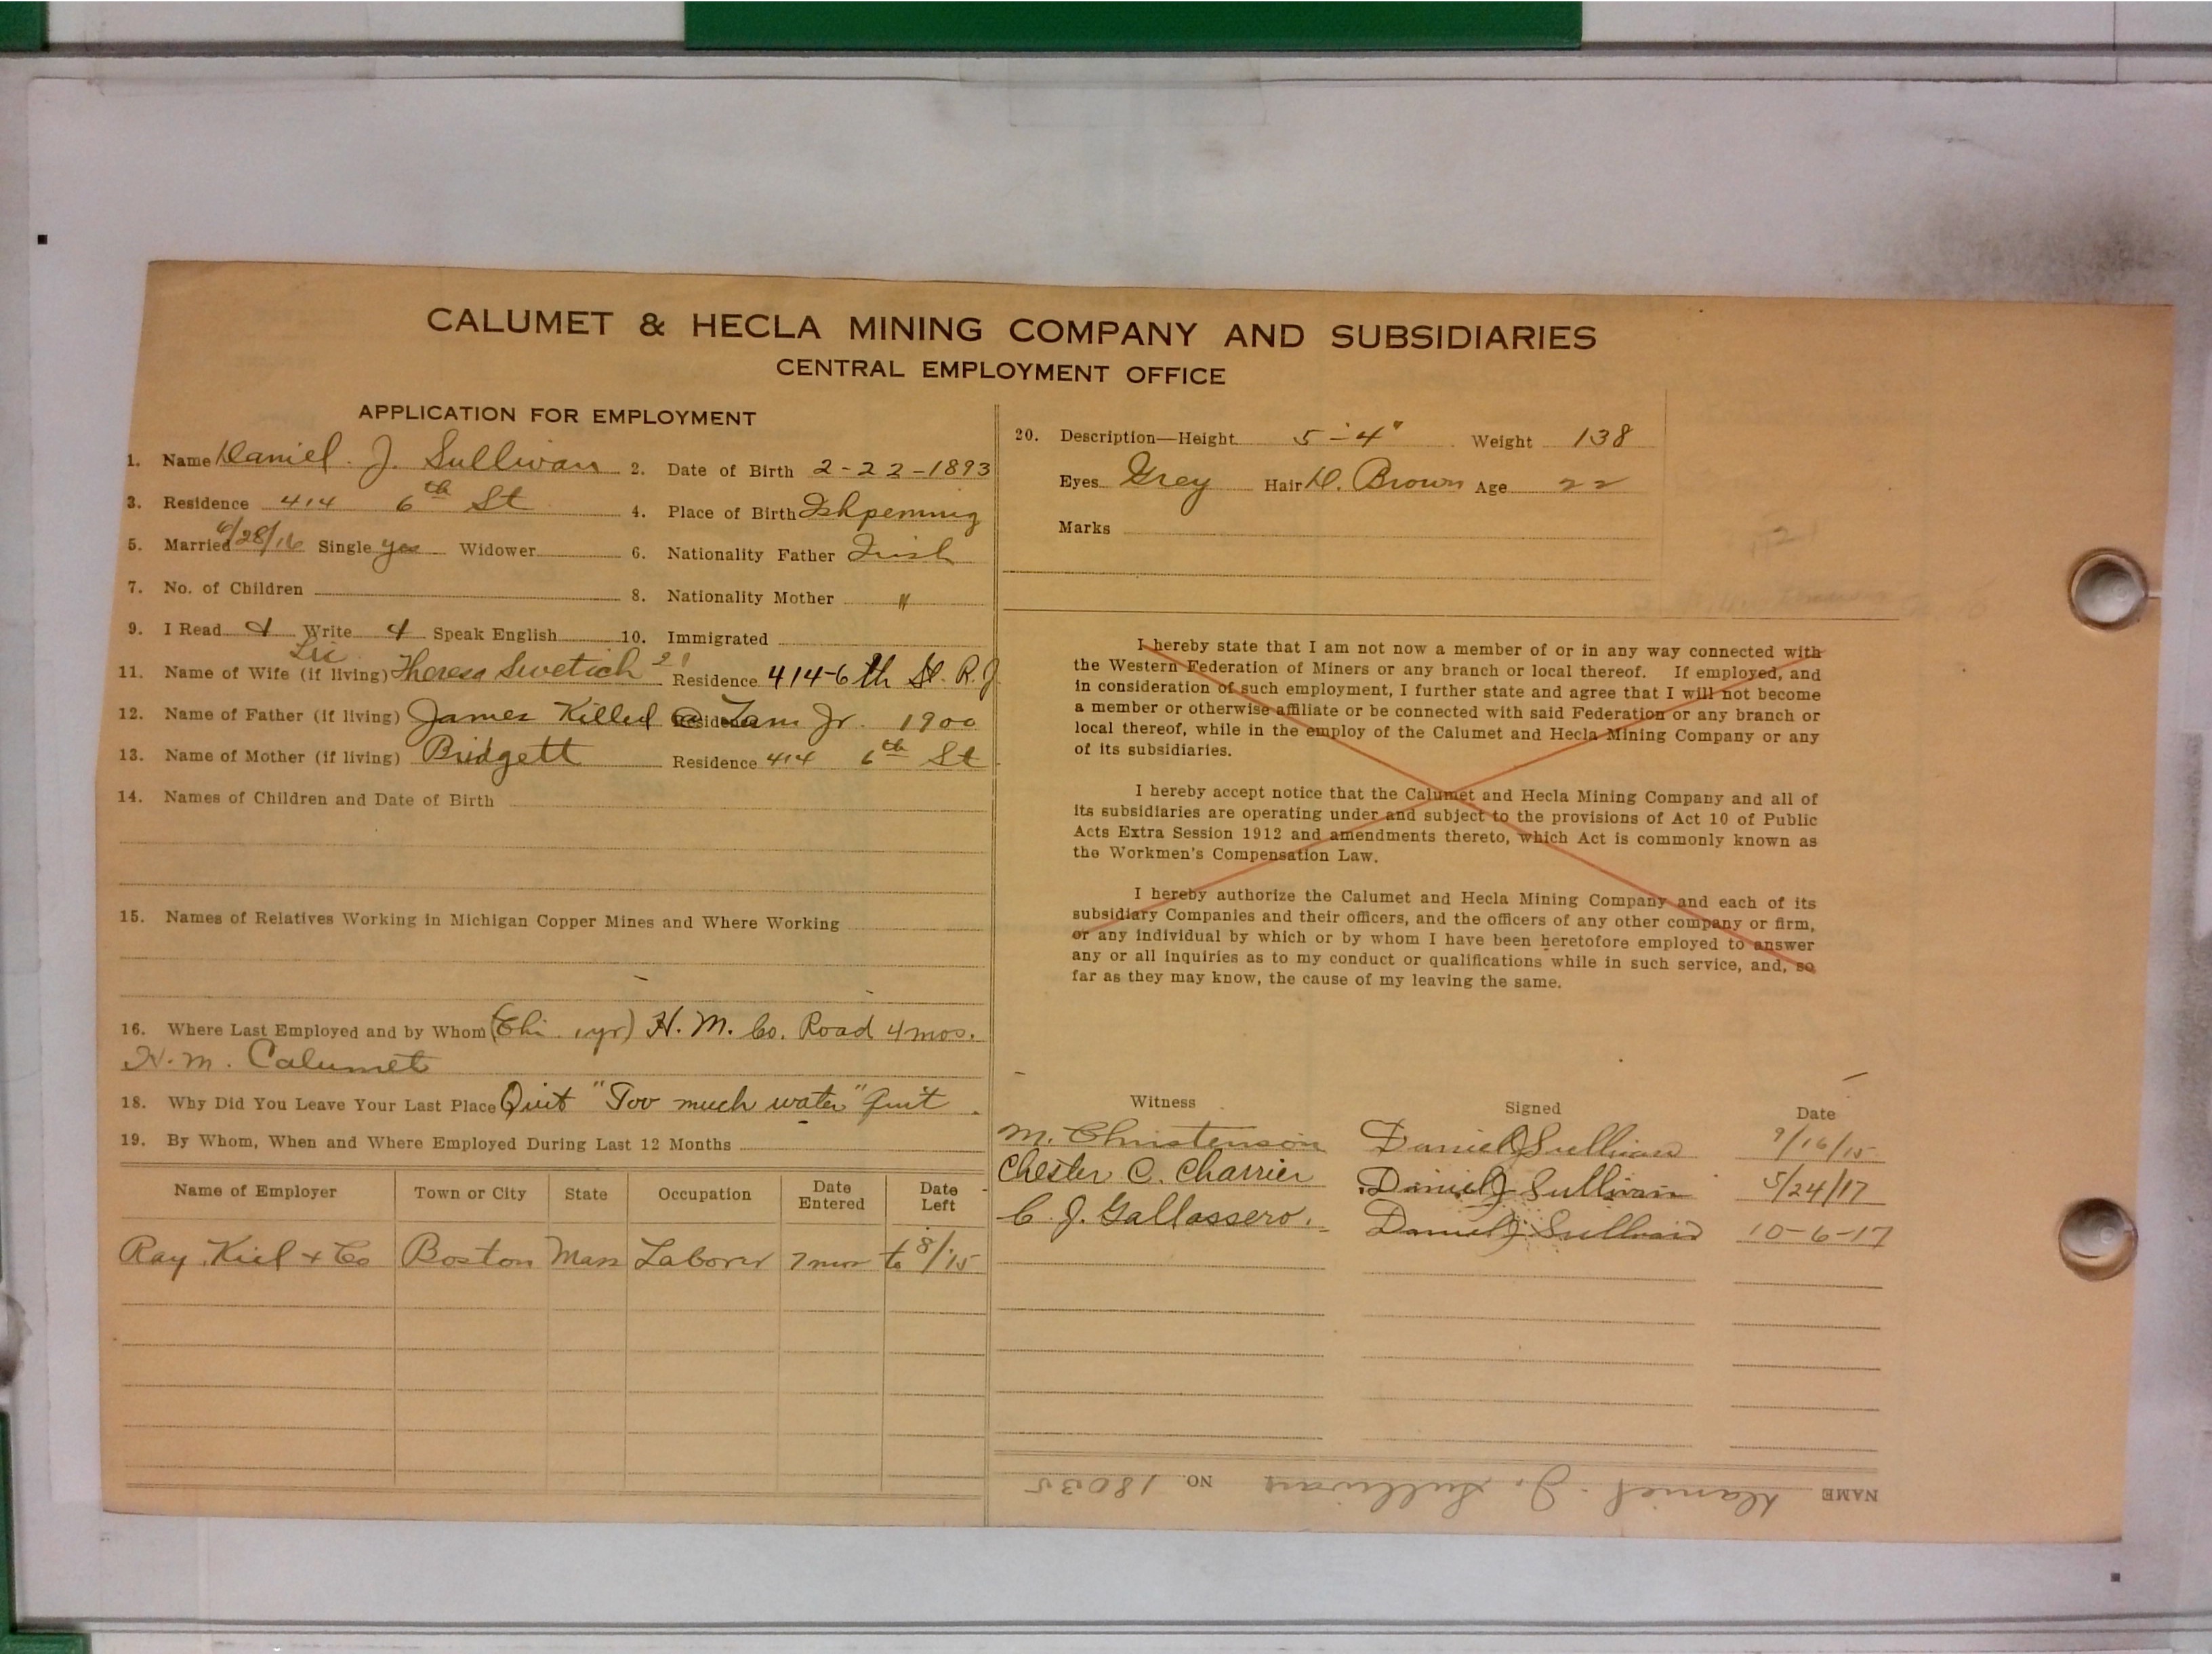 CALUMET & HECLA MINING COMPANY AND SUBSIDIARIES
CENTRAL EMPLOYMENT OFFICE
APPLICATION FOR EMPLOYMENT
1. Name Daniel. J. Sullivan 2. Date of Birth 2-22-1893
3. Residence 414 6th St 4. Place of Birth Ishpeming
5. Married 6/28/16 Single yes Widower 6. Nationality Father Irish
7. No. of Children 8. Nationality Mother "
9. I Read Write Speak English 10. Immigrated
11. Name of Wife (if living) Theresa Swetich 21 Residence 414-6th St. R.J
12. Name of Father (if living) James Killed @ Tam Jr. 1900
13. Name of Mother (if living) Bridgett Residence 414 6th St
14. Names of Children and Date of Birth
15. Names of Relatives Working in Michigan Copper Mines and Where Working
16. Where Last Employed and by Whom (Chi. 1yr) H. M. Co. Road 4 mos.
H. M. Calumet
18. Why Did You Leave Your Last Place Quit "Too much water" Quit
19. By Whom, When and Where Employed During Last 12 Months
Name of Employer Town or City State Occupation Date Entered Date Left
Ray. Kiel + Co Boston Mass Laborer 7 mos to 8/15
20. Description—Height 5'-4" Weight 138
Eyes Grey Hair D. Brown Age 22
Marks
I hereby state that I am not now a member of or in any way connected with
the Western Federation of Miners or any branch or local thereof. If employed, and
in consideration of such employment, I further state and agree that I will not become
a member or otherwise affiliate or be connected with said Federation or any branch or
local thereof, while in the employ of the Calumet and Hecla Mining Company or any
of its subsidiaries.
I hereby accept notice that the Calumet and Hecla Mining Company and all of
its subsidiaries are operating under and subject to the provisions of Act 10 of Public
Acts Extra Session 1912 and amendments thereto, which Act is commonly known as
the Workmen's Compensation Law.
I hereby authorize the Calumet and Hecla Mining Company and each of its
subsidiary Companies and their officers, and the officers of any other company or firm,
or any individual by which or by whom I have been heretofore employed to answer
any or all inquiries as to my conduct or qualifications while in such service, and, so
far as they may know, the cause of my leaving the same.
Witness Signed Date
M. Christenson Daniel J Sullivan 9/16/15
Chester C. Charrier Daniel J Sullivan 5/24/17
C. J. Gallassero. Daniel J Sullivan 10-6-17
NAME Daniel. J. Sullivan NO. 18035